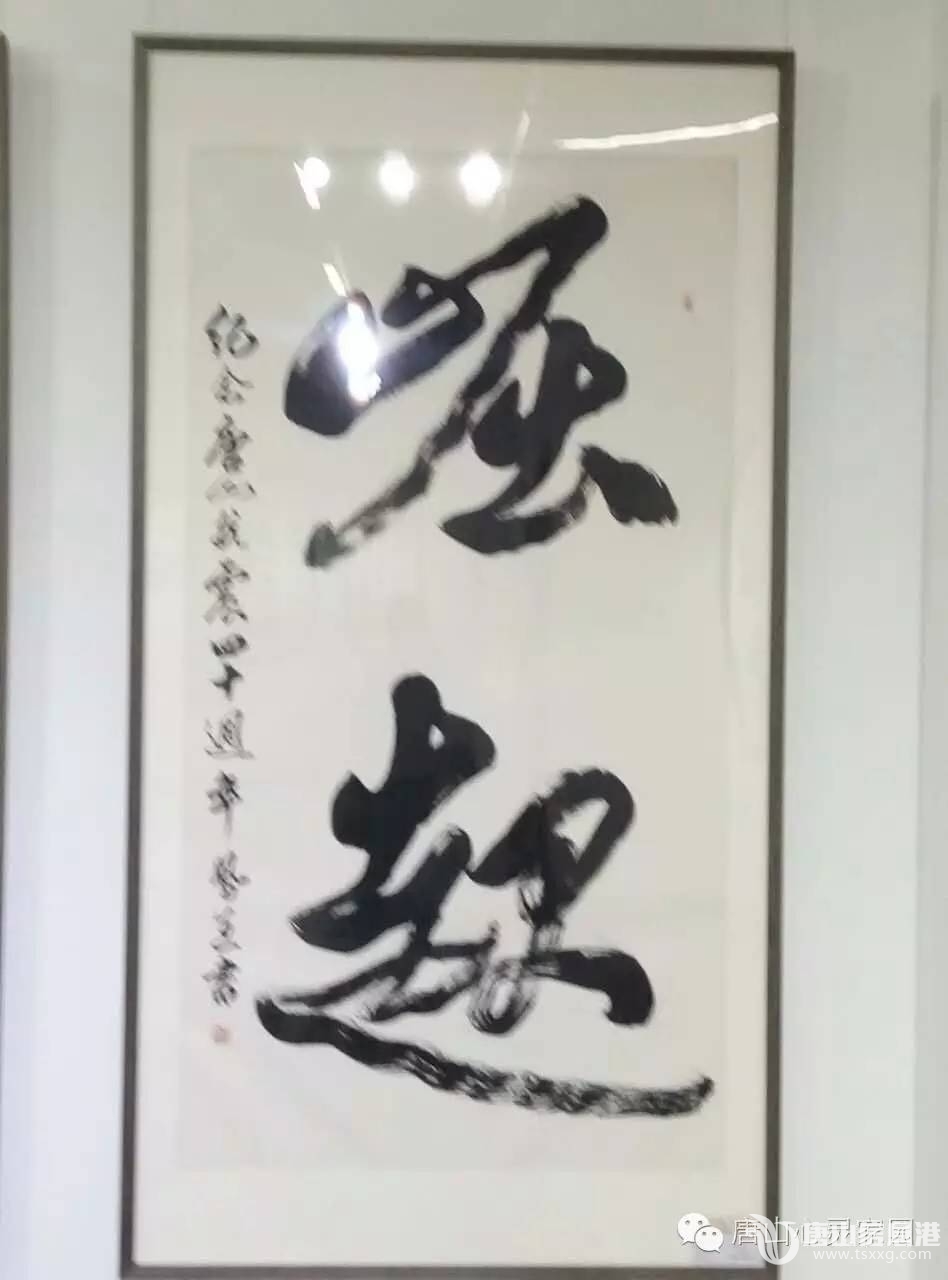 崛起
纪念唐山抗震四十週年 书
唐山
www.tsxxg.com